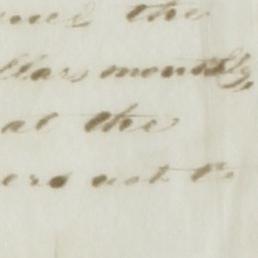 the
llars monthly,
at the
ers not to